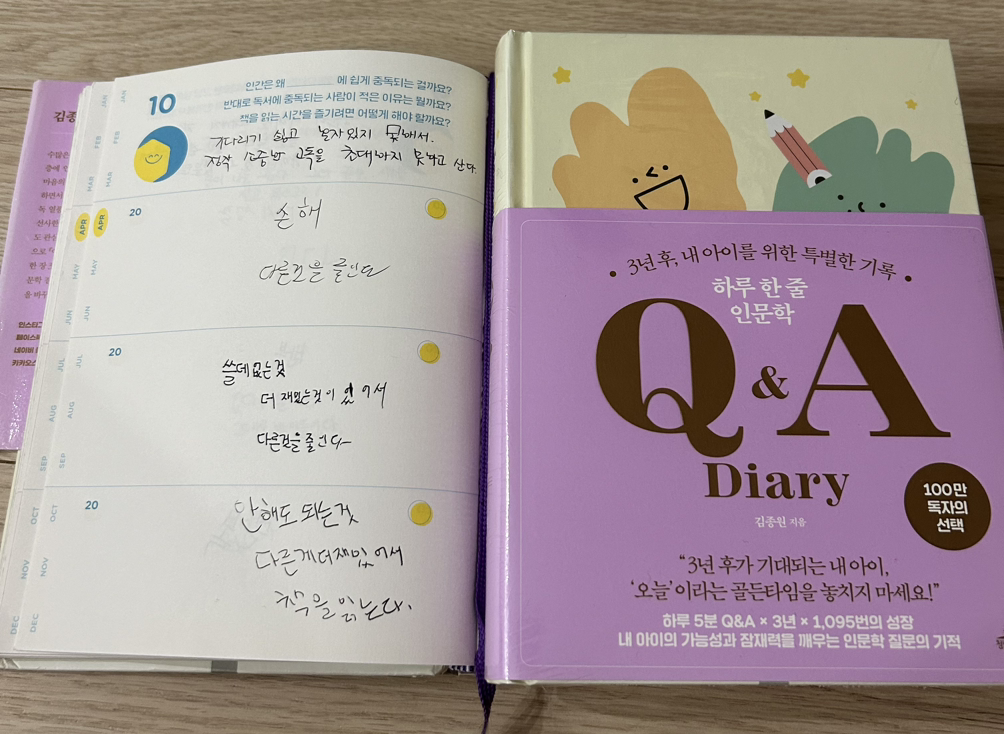 김종
수많은
중에
마음의
하면서
독
선사한
도
으로
한 장
문학
을 바꾸
인스타그
페이스북
네이버
카카오스
JAN
FEB
MAR
APR
MAY
JUN
JUL
AUG
SEP
OCT
NOV
DEC
JAN
FEB
MAR
APR
MAY
JUN
JUL
AUG
SEP
OCT
NOV
DEC
10
인간은 왜 ______ 에 쉽게 중독되는 걸까요?
반대로 독서에 중독되는 사람이 적은 이유는 뭘까요?
책을 읽는 시간을 즐기려면 어떻게 해야 할까요?
기다리기 싫고 혼자 있지 못해서.
정작 소중한 고독을 초대하지 못하고 산다.
20
손해
다른 것을 줄인다
20
쓸데없는것
더 재밌는것이 있어서
다른것을 줄인다
20
안해도 되는것
다른게 더 재밌어서
책을 읽는다.
3년 후, 내 아이를 위한 특별한 기록
하루 한 줄
인문학
Q & A
Diary
김종원 지음
100만
독자의
선택
“3년 후가 기대되는 내 아이,
‘오늘’이라는 골든타임을 놓치지 마세요!”
하루 5분 Q&A × 3년 × 1,095번의 성장
내 아이의 가능성과 잠재력을 깨우는 인문학 질문의 기적